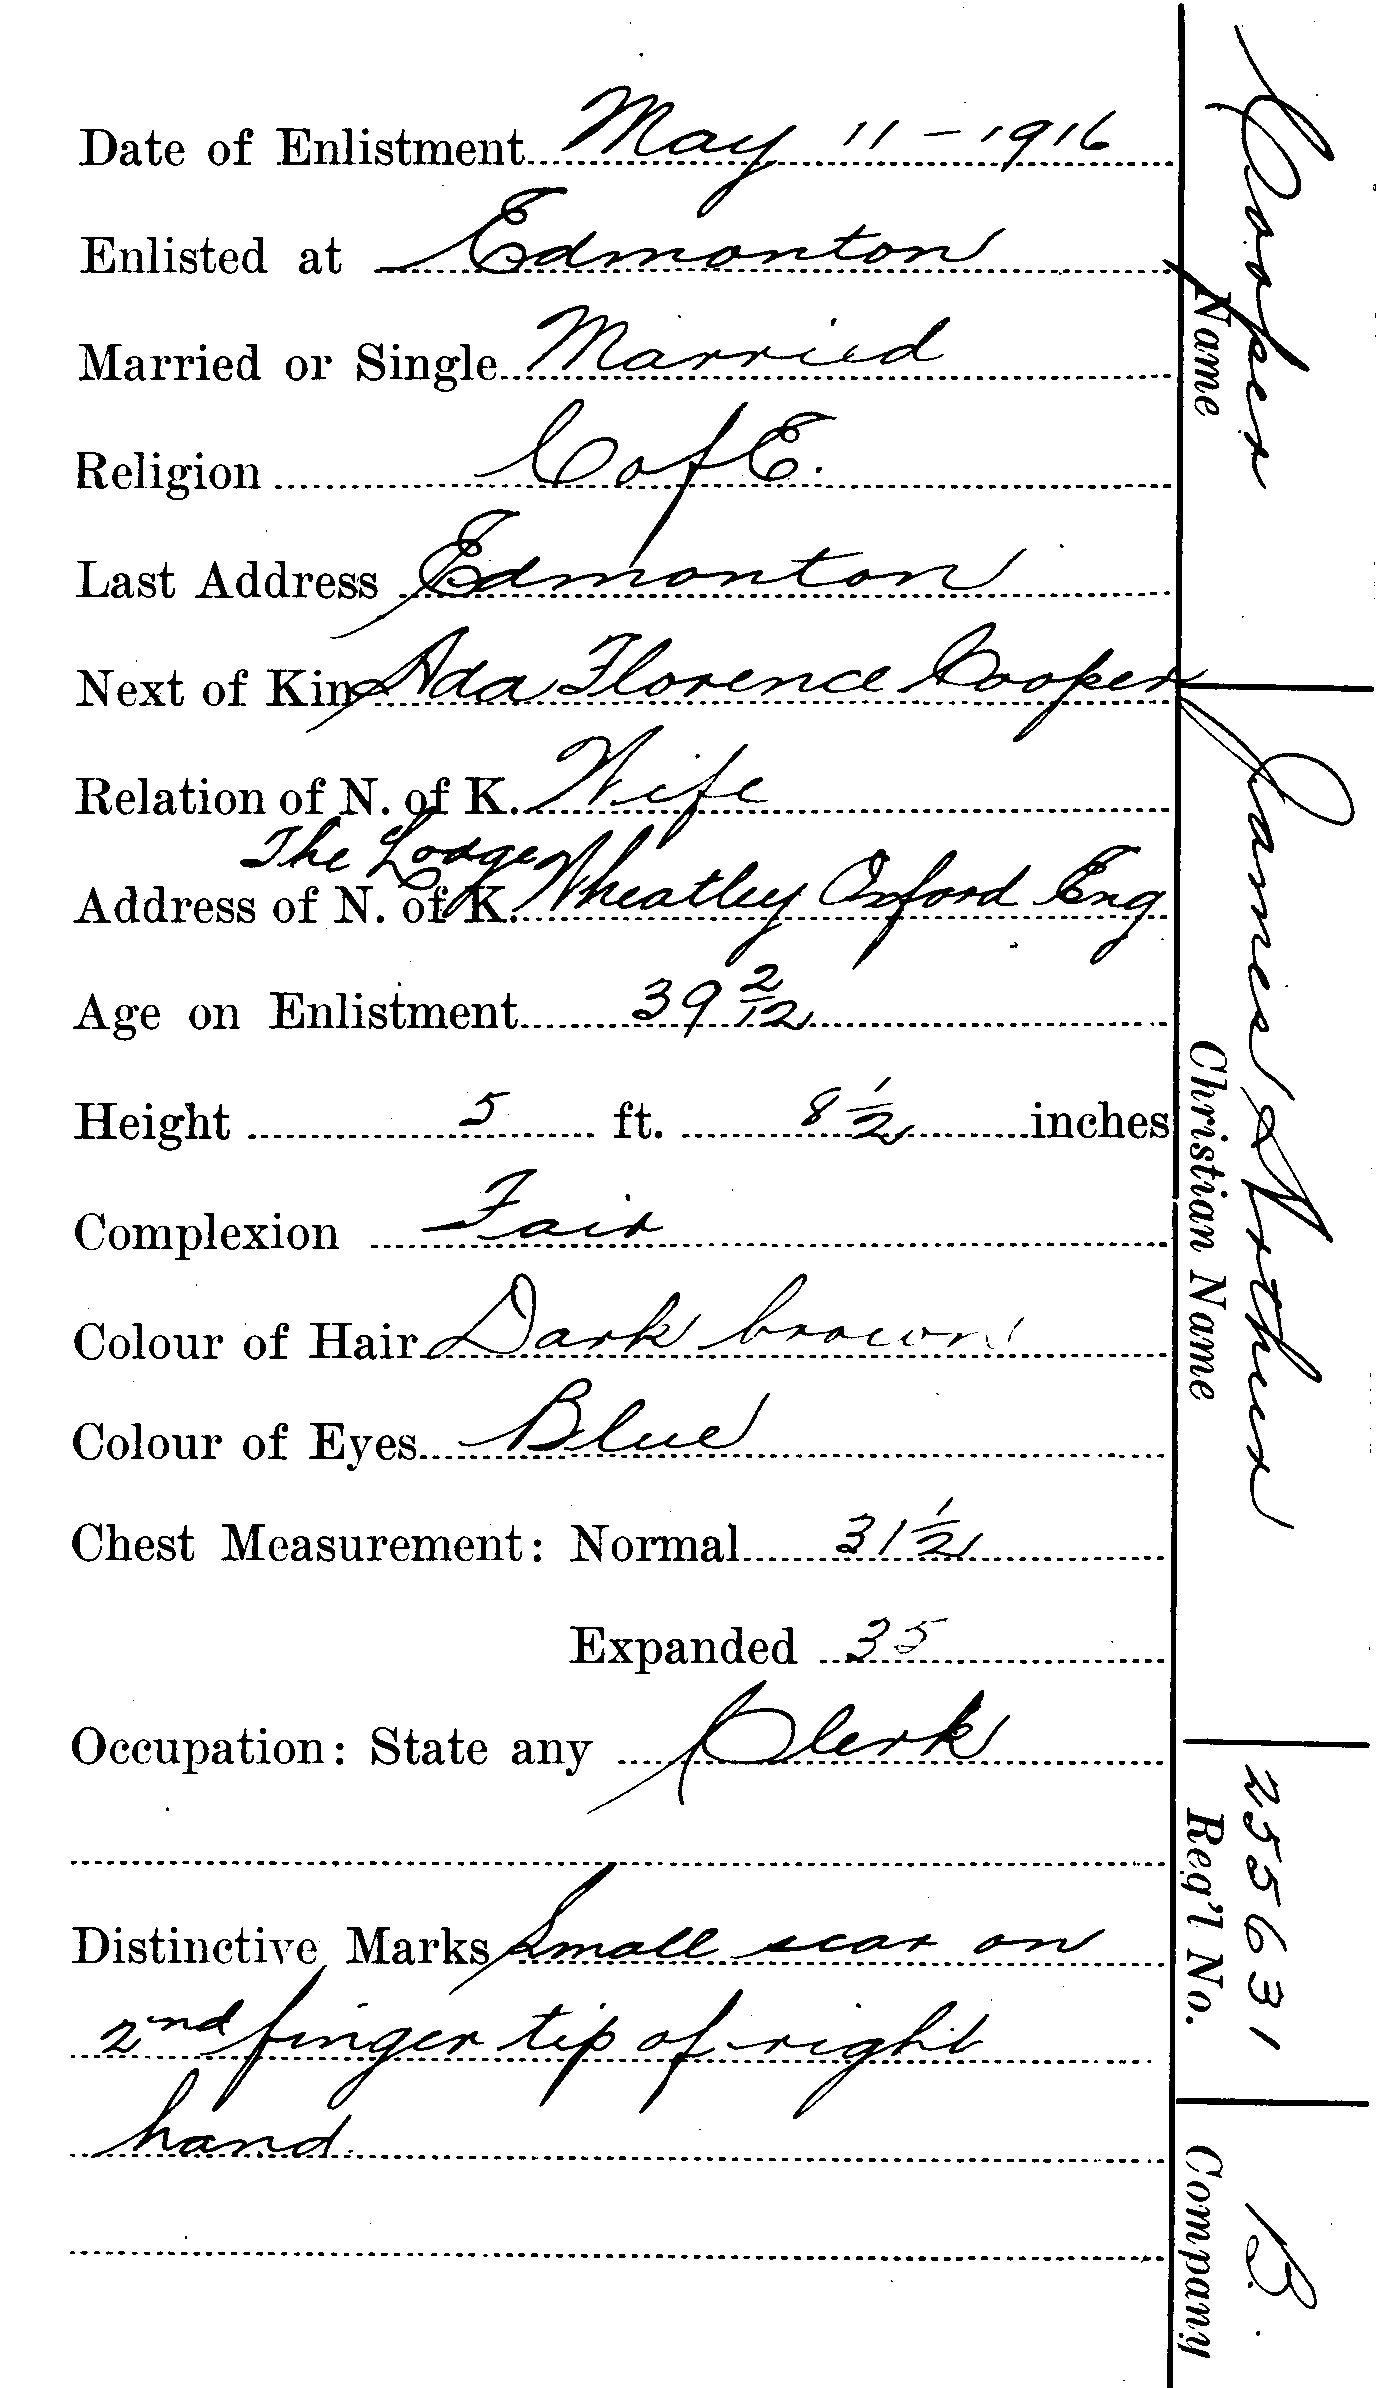 Date of Enlistment May 11 - 1916
Enlisted at Edmonton
Married or Single Married
Religion C of E.
Last Address Edmonton
Next of Kin Ada Florence Cooper
Relation of N. of K. Wife
The Lodge
Address of N. of K. Wheatley Oxford Eng
Age on Enlistment 39 2/12
Height 5 ft. 8 1/2 inches
Complexion Fair
Colour of Hair Dark brown
Colour of Eyes Blue
Chest Measurement: Normal 31 1/2
Expanded 35
Occupation: State any Clerk
Distinctive Marks Small scar on
2nd finger tip of right
hand
Cooper James Arthur 255631 B.
Name Christian Name Reg'l No. Company